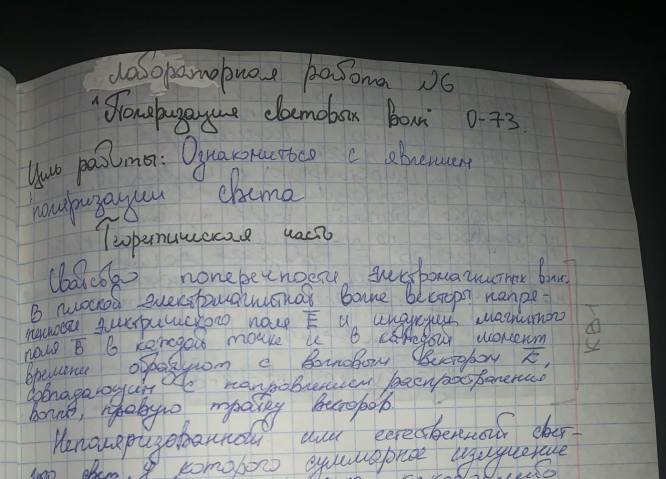 Лабораторная работа №6
"Поляризация световых волн" О-73.
Цель работы: Ознакомиться с явлением
поляризации света
Теоритическая часть
Свойство поперечности электромагнитных волн.
В плоской электромагнитной волне векторы напря-
женности электрического поля E и индукции магнитного
поля B в каждой точке и в каждый момент
времени образуют с волновым вектором k,
совпадающим с направлением распространения
волны, правую тройку векторов.
КВ-1
Неполяризованный или естественный свет-
это свет, у которого суммарное излучение